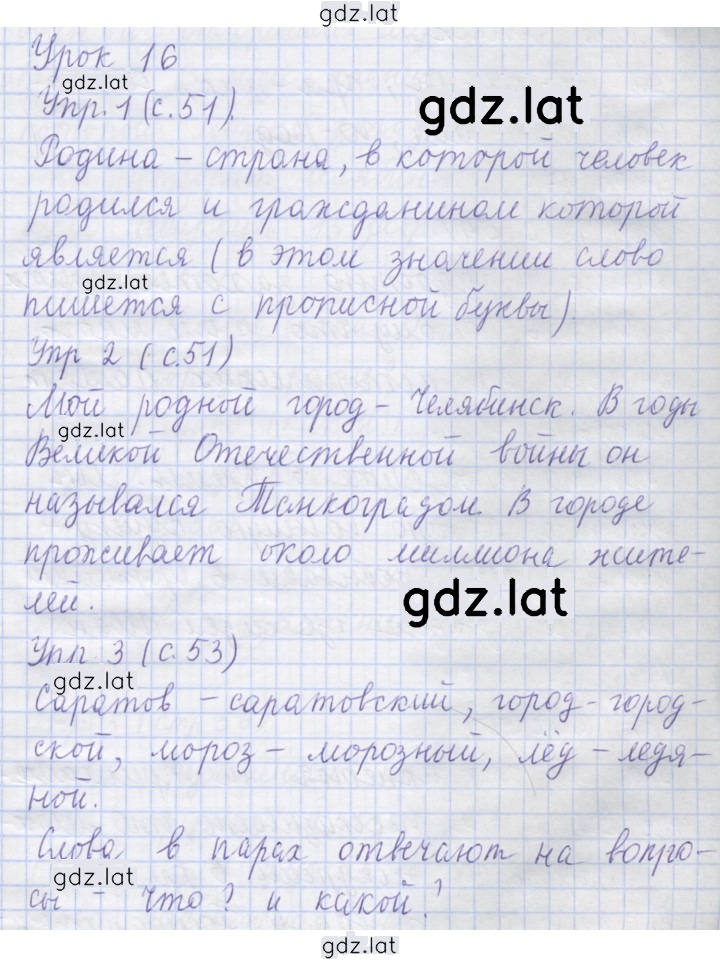 gdz.lat
Урок 16
gdz.lat
Упр. 1 (с. 51).
gdz.lat
Родина – страна, в которой человек
родился и гражданином которой
является ( в этом значении слово
gdz.lat
пишется с прописной буквы).
Упр 2 ( с. 51)
Мой родной город – Челябинск. В годы
gdz.lat
Великой Отечественной войны он
назывался Танкоградом. В городе
проживает около миллиона жите-
лей.
gdz.lat
Упр 3 ( с. 53)
gdz.lat
Саратов – саратовский, город – город-
ской, мороз – морозный, лёд – ледя-
ной.
Слова в парах отвечают на вопро-
gdz.lat
сы – что? и какой?
gdz.lat